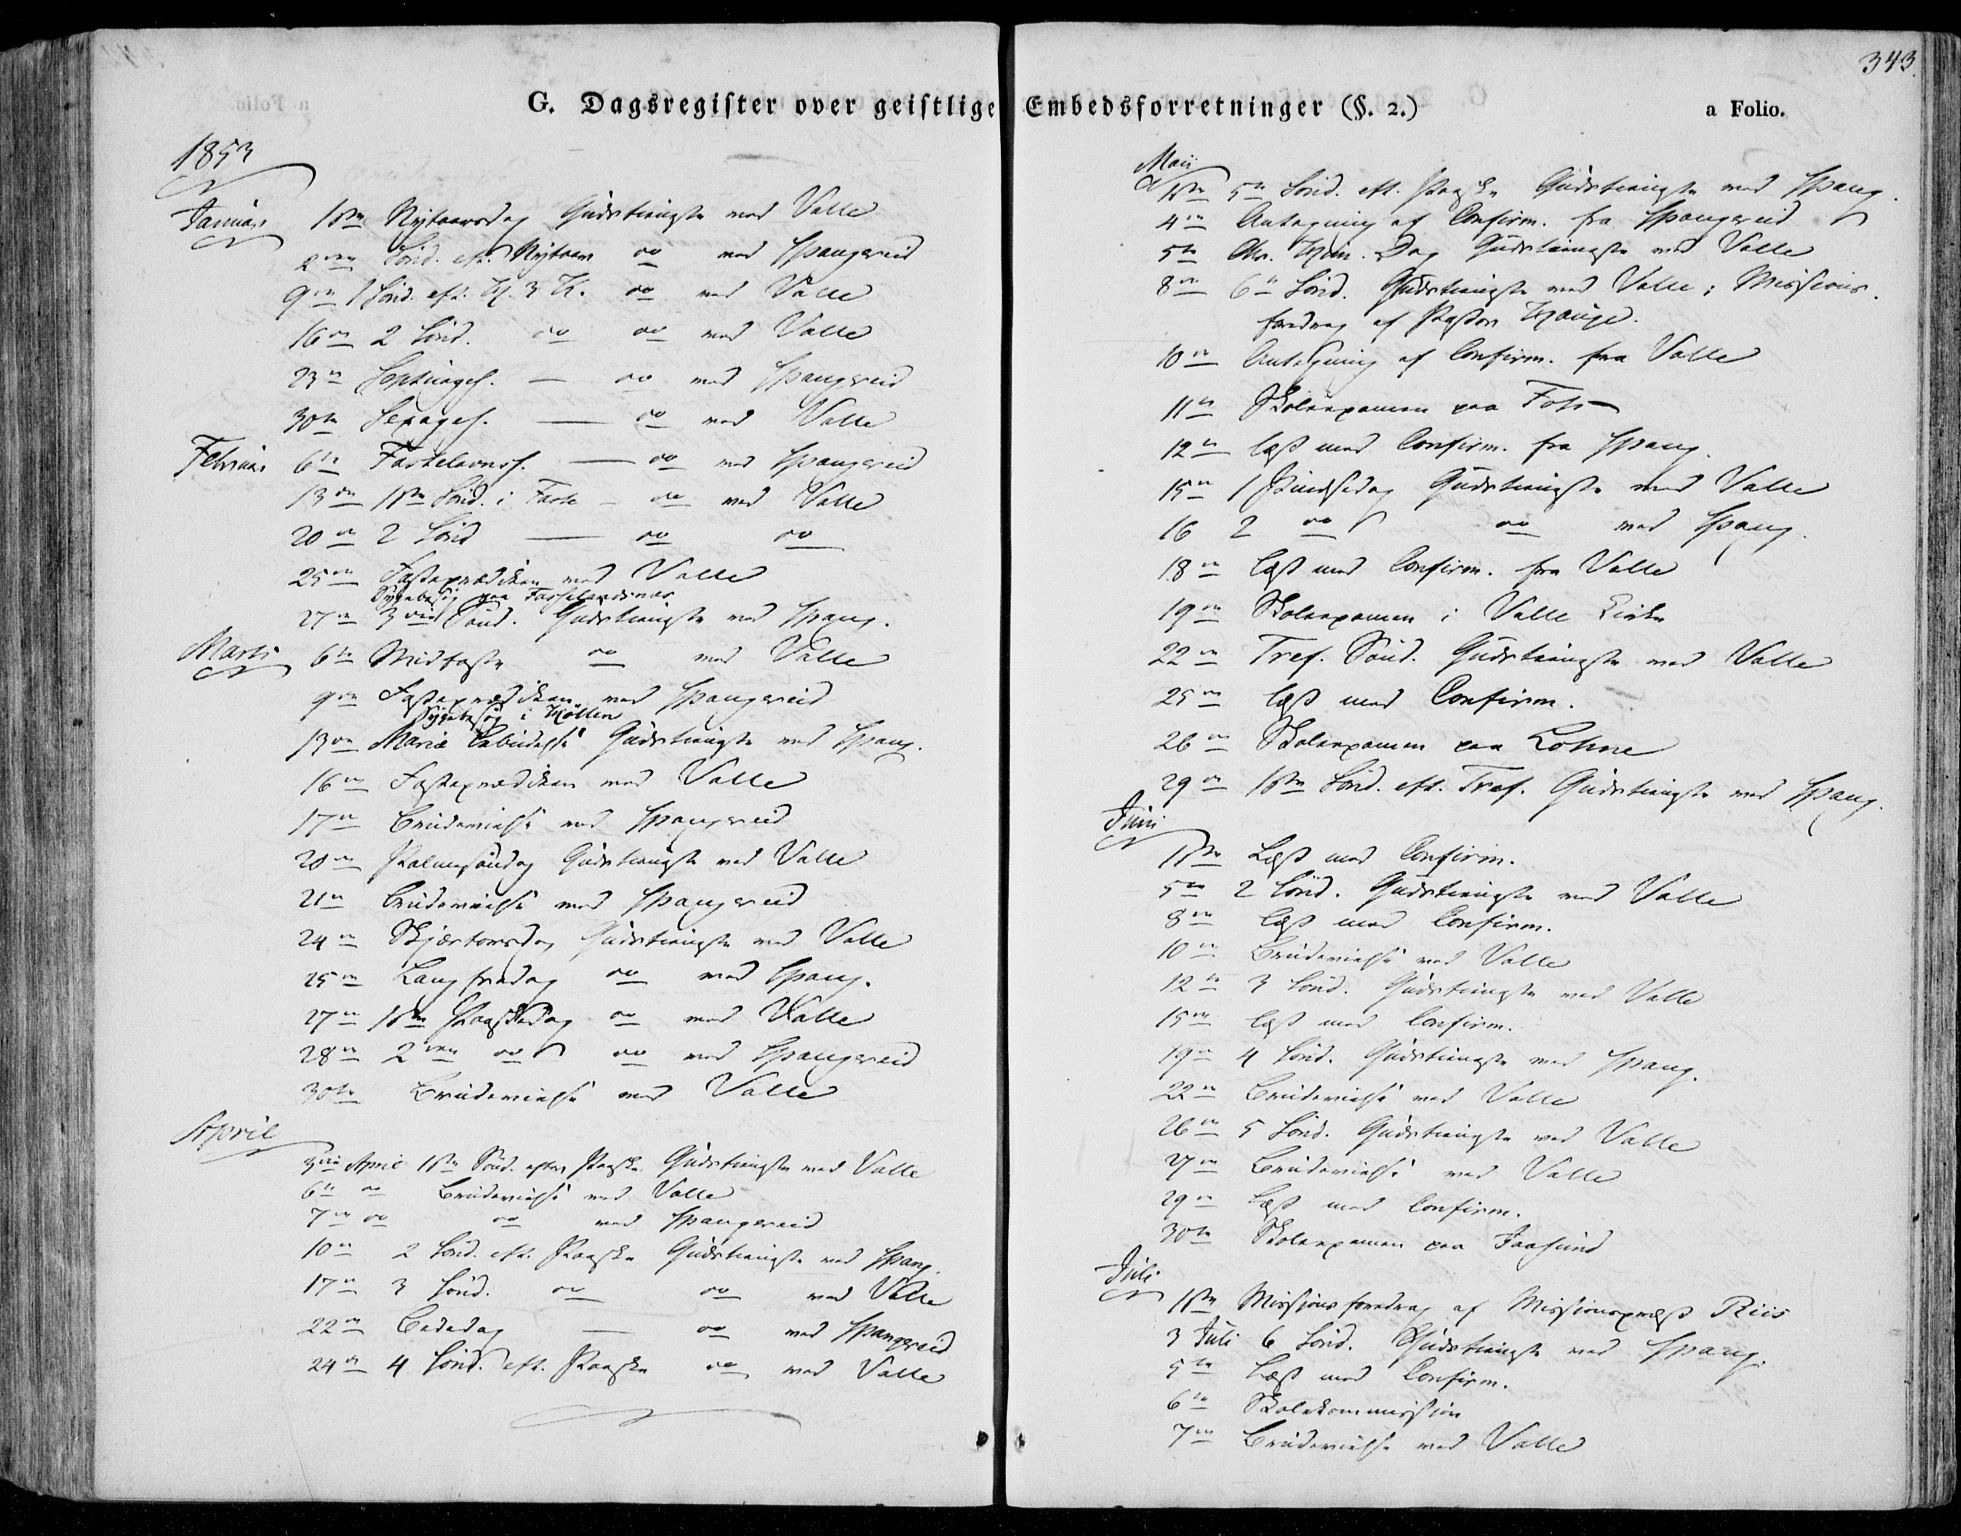 343.
G. Dagsregister over geistlige Embedsforretninger (§. 2.)
a Folio.
1853
Januar 1ste Nytaarsdag Gudstieneste ved Valle
2den Sønd. eft. Nytaar do ved Spangereid
9de 1 Sønd. eft. H. 3 K. do ved Valle
16de 2 Sønd. do do ved Valle
23de Septuages. — do ved Spangereid
30te Sexages. — do ved Valle
Februar 6te Fastelavnss. — do ved Spangereid
13de 1ste Sønd. i Faste — do ved Valle
20de 2 Sønd — do do
25de Fasteprædiken ved Valle
Sygebesøg paa
27de 3die Sønd. Gudstieneste ved Spang.
Marts 6te Midfaste do ved Valle
9de Fasteprædiken ved Spangereid
Sygebesøg i
13de Mariæ Bebudelse Gudstieneste ved Spang.
16de Fasteprædiken ved Valle
17de Brudevielse ved Spangereid
20de Palmesøndag Gudstieneste ved Valle
21de Brudevielse ved Spangereid
24de Skjertorsdag Gudstieneste ved Valle
25de Langfredag do ved Spang.
27de 1ste Paaskedag do ved Valle
28de 2den do do ved Spangereid
30te Brudevielse ved Valle
April
3die April 1ste Sønd. efter Paaske Gudstieneste ved Valle
6te do Brudevielse ved Valle
7de do do ved Spangereid
10de 2 Sønd. eft. Paaske Gudstieneste ved Spang.
17de 3 Sønd. do do ved Valle
22de Bededag — do ved Spangereid
24de 4 Sønd. eft. Paaske do ved Valle
Mai
1ste 5te Sønd. eft. Paaske Gudstieneste ved Spang.
4de Antegning af Confirm. fra Spangereid
5te Chr. Him. Dag Gudstieneste ved Valle
8de 6te Sønd. Gudstieneste ved Valle; Missions-
foredrag af Pastor Hauge.
10de Antegning af Confirm. fra Valle
11te Skoleexamen paa Foss
12te læst med Confirm. fra Spang.
15de 1 Pindsedag Gudstieneste ved Valle
16 2 do do ved Spang.
18de læst med Confirm. fra Valle
19de Skoleexamen i Valle Kirke
22de Tref. Sønd. Gudstieneste ved Valle
25de læst med Confirm.
26de Skoleexamen paa Lohne
29de 1ste Sønd. eft. Tref. Gudstieneste ved Spang.
Juni
1ste Læst med Confirm.
5te 2 Sønd. Gudstieneste ved Valle
8de læst med Confirm.
10de Brudevielse ved Valle
12te 3 Sønd. Gudstieneste ved Valle
15de læst med Confirm.
19de 4 Sønd. Gudstieneste ved Spang.
22de Brudevielse ved Valle
26de 5 Sønd. Gudstieneste ved Valle
27de Brudevielse ved Valle
29de læst med Confirm.
30te Skoleexamen paa Jaasund
Juli
1ste Missionsforedrag af Missionspræst Riis
3 Juli 6 Sønd. Gudstieneste ved Spang.
5te Læst med Confirm.
6te Skolekommission
7de Brudevielse ved Valle